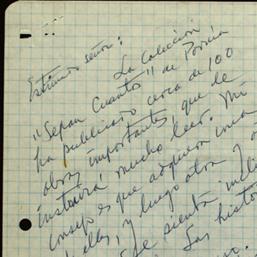 Estimado señor:
La Colección
"Sepan Cuantos" de Porrúa
ha publicado cerca de 100
obras importantes que de
mucho leer. Mi
consejo es que adquiera una
de ellas, y luego otra y
Se siente
Las